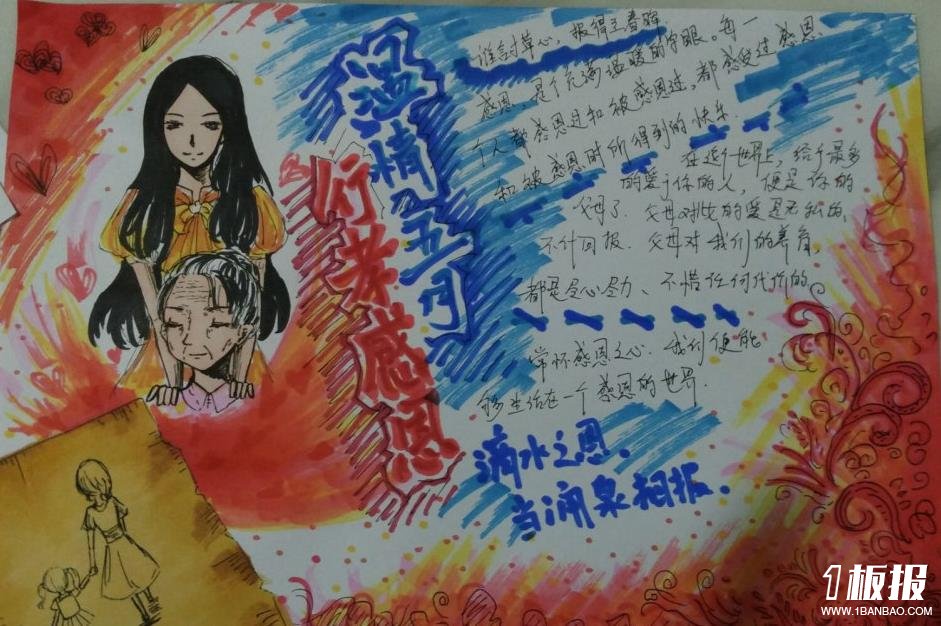 温情五月
行孝感恩
谁言寸草心，报得三春晖
感恩，是个充满温暖的字眼。每一
个人都感恩过和被感恩过，都感受过感恩
和被感恩时所得到的快乐.
在这个世界上，给予最多
的爱予你的人，便是你的
父母了.父母对 的爱是无私的、
不计回报.父母对我们的养育，
都是尽心尽力、不惜任何代价的
常怀感恩之心.我们便能
够生活在一个感恩的世界.
滴水之恩、
当涌泉相报.
1板报
WWW.1BANBAO.COM